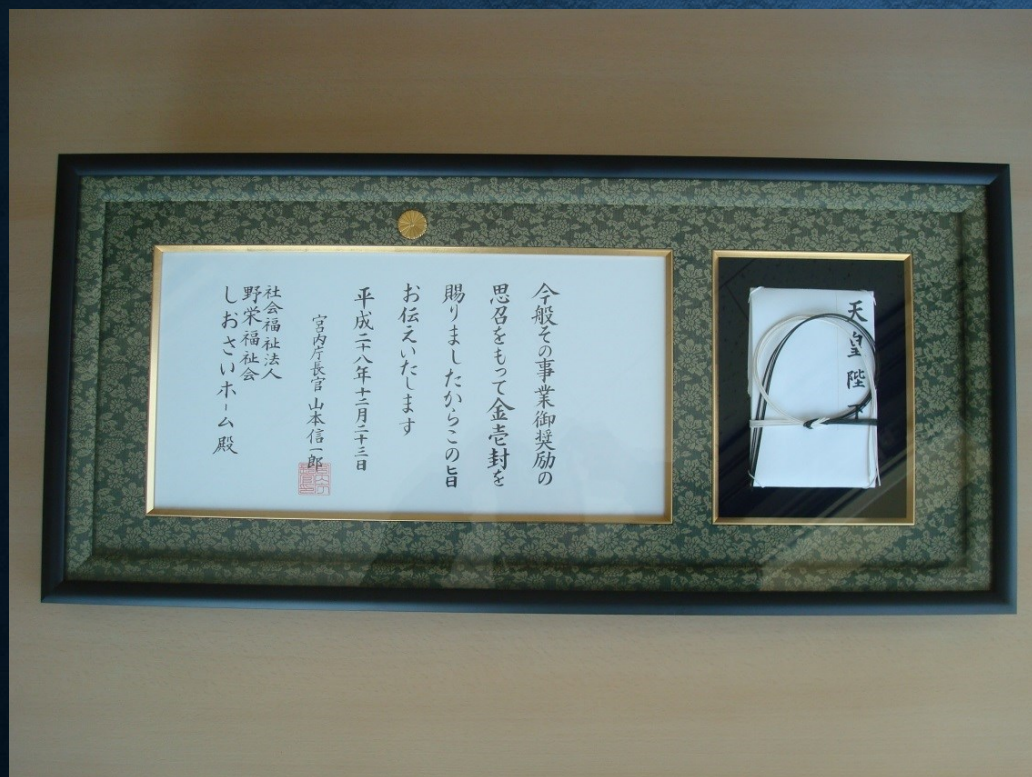 天皇陛下
今般その事業御奨励の
思召をもって金壱封を
賜りましたからこの旨
お伝えいたします
平成二十八年十二月二十三日
宮内庁長官 山本信一郎
社会福祉法人
野栄福祉会
しおさいホーム 殿